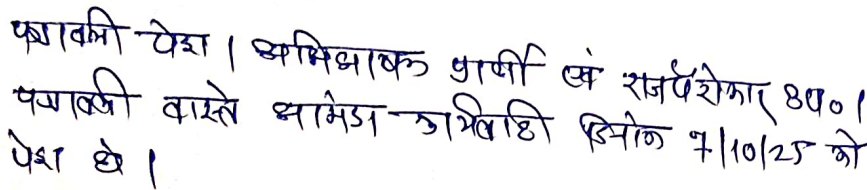 पत्रावली पेश । अभिभाषक प्रार्थी एवं राजपैरोकार उप० ।
पत्रावली वास्ते आगामी कार्यवाही दिनांक 7/10/25 को
पेश हो ।